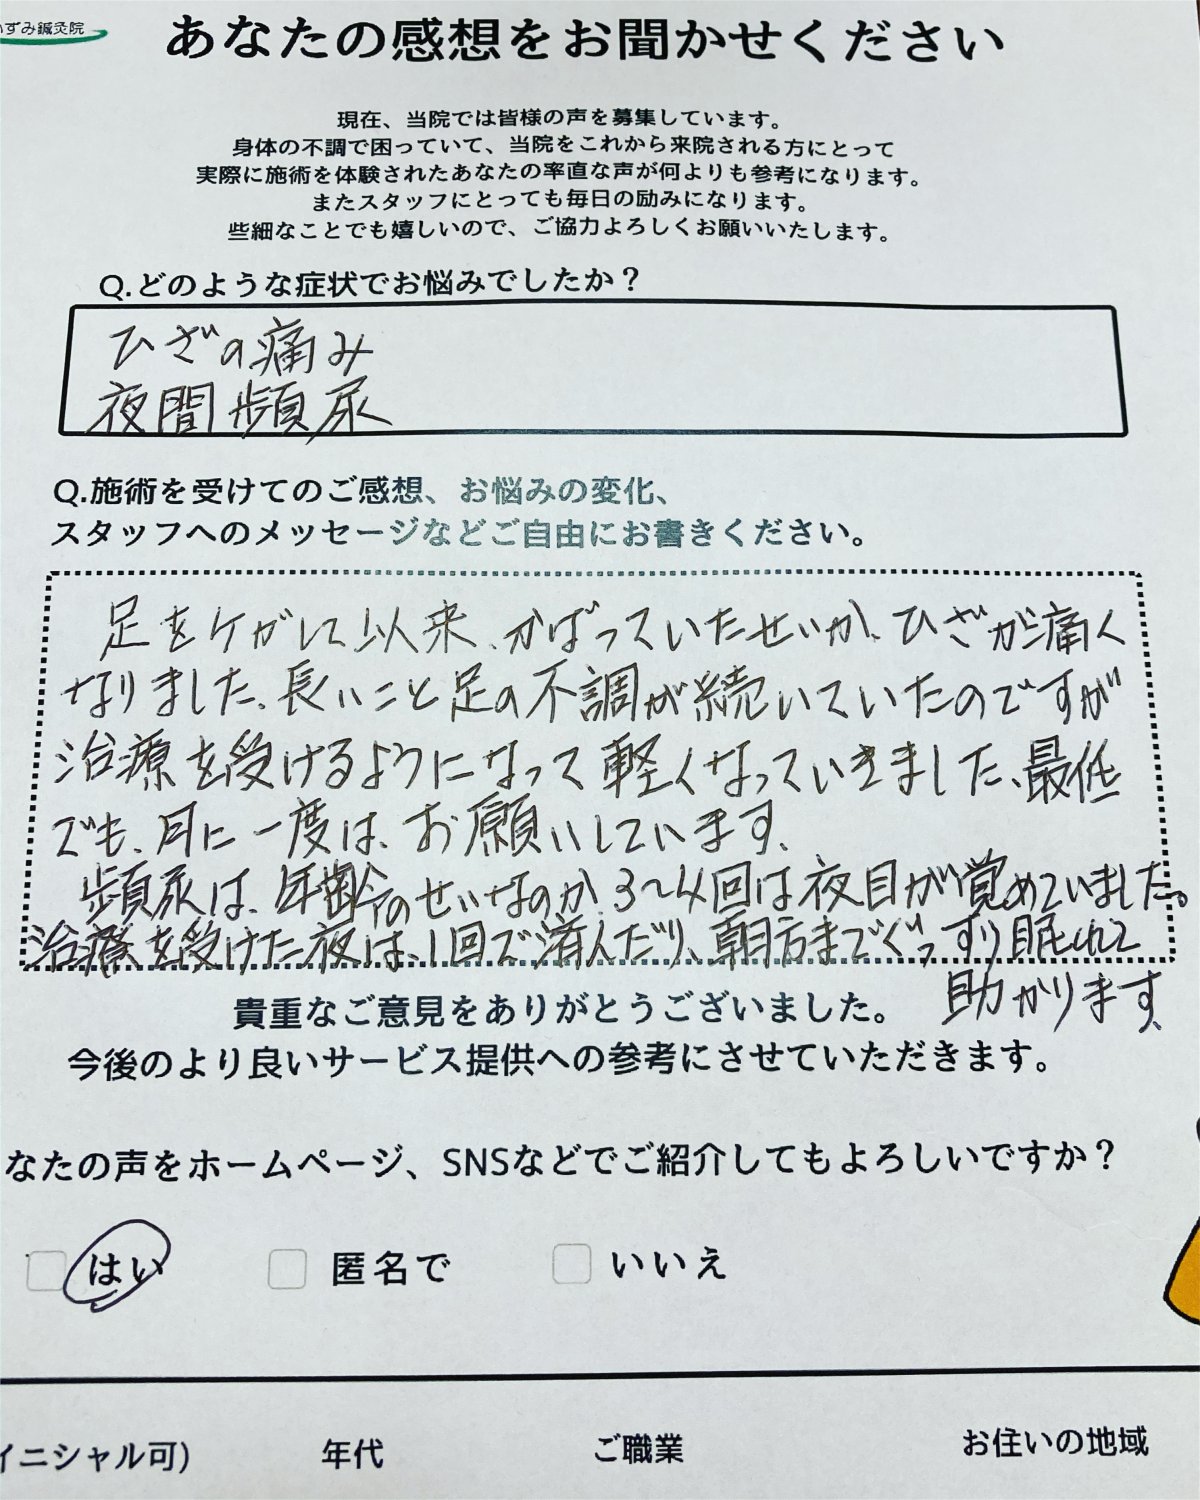 いずみ鍼灸院
あなたの感想をお聞かせください
現在、当院では皆様の声を募集しています。
身体の不調で困っていて、当院をこれから来院される方にとって
実際に施術を体験されたあなたの率直な声が何よりも参考になります。
またスタッフにとっても毎日の励みになります。
些細なことでも嬉しいので、ご協力よろしくお願いいたします。
Q.どのような症状でお悩みでしたか？
ひざの痛み
夜間頻尿
Q.施術を受けてのご感想、お悩みの変化、
スタッフへのメッセージなどご自由にお書きください。
足をケガして以来、かばっていたせいか、ひざが痛く
なりました、長いこと足の不調が続いていたのですが
治療を受けるようになって軽くなっていきました、最低
でも、月に一度は、お願いしています、
頻尿は、年齢のせいなのか、3〜4回は夜目が覚めていました。
治療を受けた夜は、1回で済んだり、朝方までぐっすり眠れて
助かります、
貴重なご意見をありがとうございました。
今後のより良いサービス提供への参考にさせていただきます。
なたの声をホームページ、SNSなどでご紹介してもよろしいですか？
はい 匿名で いいえ
イニシャル可) 年代 ご職業 お住いの地域